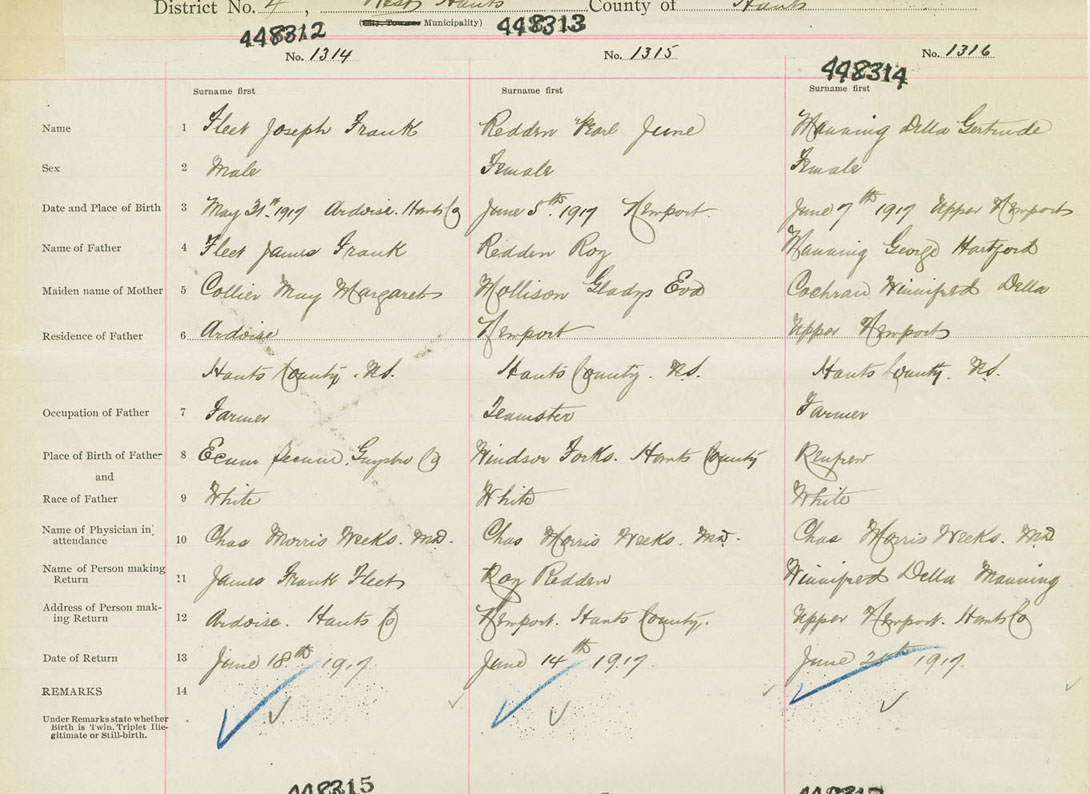 District No. 4, West Hants County of Hants
(City, Town or Municipality)
448312 448313 448314
No. 1314 No. 1315 No. 1316
Surname first Surname first Surname first
Name 1 Fleet Joseph Frank Redden Pearl June Manning Della Gertrude
Sex 2 Male Female Female
Date and Place of Birth 3 May 31st 1917 Ardoise. Hants Co June 5th 1917 Newport. June 7th 1917 Upper Newport
Name of Father 4 Fleet James Frank Redden Roy Manning George Hartford
Maiden name of Mother 5 Collier May Margaret Mollison Gladys Eva Cochran Winnifred Della
Residence of Father 6 Ardoise Newport Upper Newport
Hants County. N.S. Hants County. N.S. Hants County. N.S.
Occupation of Father 7 Farmer Teamster Farmer
Place of Birth of Father 8 Ecum Secum, Guysbro Co Windsor Forks. Hants County Renfrew
and
Race of Father 9 White White White
Name of Physician in attendance 10 Chas Morris Weeks. MD. Chas Morris Weeks. MD. Chas Morris Weeks. MD
Name of Person making Return 11 James Frank Fleet Roy Redden Winnifred Della Manning
Address of Person making Return 12 Ardoise. Hants Co Newport. Hants County. Upper Newport. Hants Co
Date of Return 13 June 18th 1917 June 14th 1917. June 1917.
REMARKS 14
Under Remarks state whether
Birth is Twin, Triplet Ille-
gitimate or Still-birth.
448315